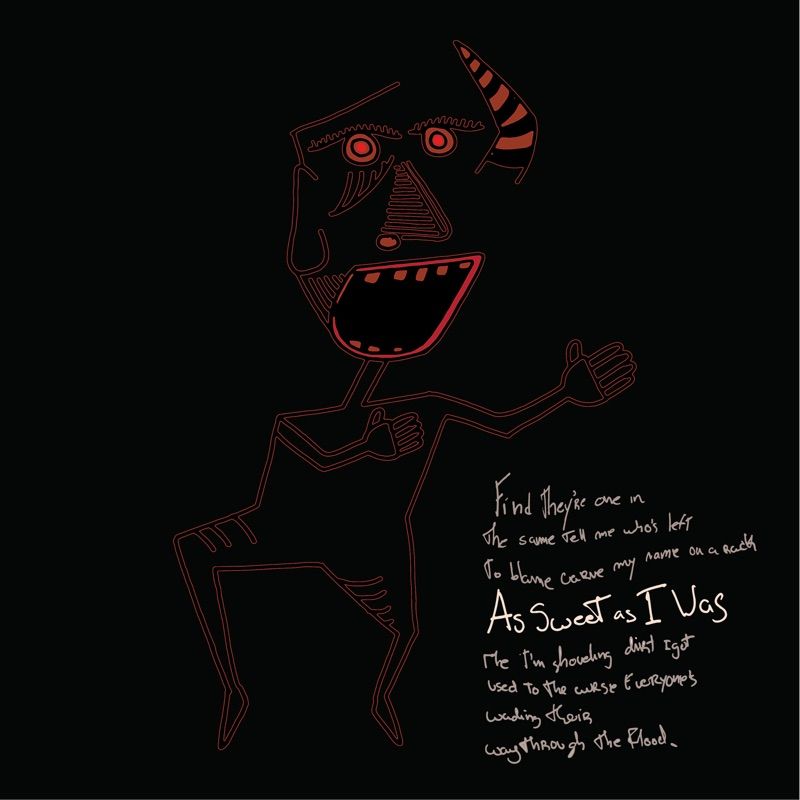 Find they're one in
The same Tell me who's left
To blame carve my name on a rack
As Sweet as I Was
Me I'm shoveling dirt I got
used To The curse Everyone's
wading their
way through the Blood.